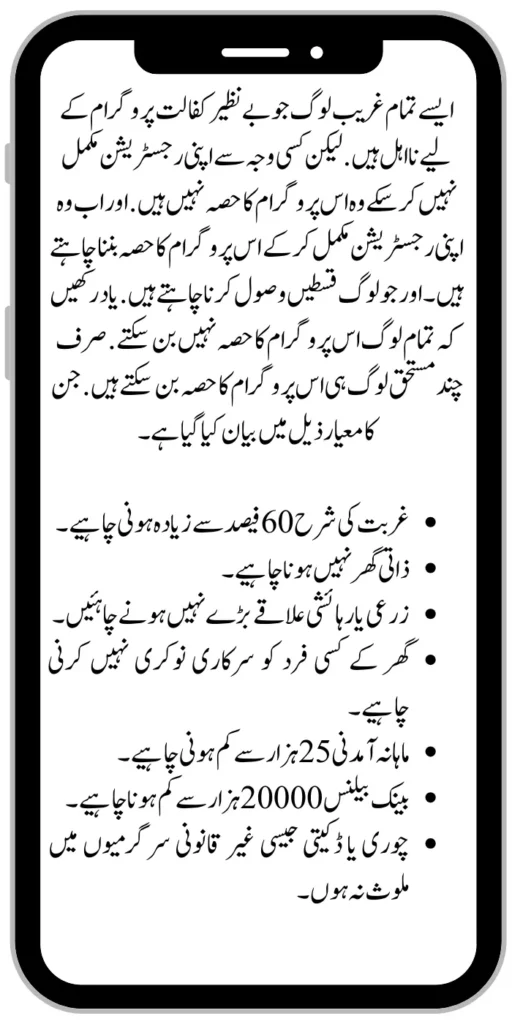 ایسے تمام غریب لوگ جو بے نظیر کفالت پروگرام کے
لیے نااہل ہیں۔ لیکن کسی وجہ سے اپنی رجسٹریشن مکمل
نہیں کرسکے وہ اس پروگرام کا حصہ نہیں ہیں۔ اور اب وہ
اپنی رجسٹریشن مکمل کرکے اس پروگرام کا حصہ بننا چاہتے
ہیں۔ اور جو لوگ قسطیں وصول کرنا چاہتے ہیں۔ یاد رکھیں
کہ تمام لوگ اس پروگرام کا حصہ نہیں بن سکتے۔ صرف
چند مستحق لوگ ہی اس پروگرام کا حصہ بن سکتے ہیں۔ جن
کا معیار ذیل میں بیان کیا گیا ہے۔
• غربت کی شرح 60 فیصد سے زیادہ ہونی چاہیے۔
• ذاتی گھر نہیں ہونا چاہیے۔
• زرعی یا رہائشی علاقے بڑے نہیں ہونے چاہئیں۔
• گھر کے کسی فرد کو سرکاری نوکری نہیں کرنی
چاہیے۔
• ماہانہ آمدنی 25 ہزار سے کم ہونی چاہیے۔
• بینک بیلنس 20000 ہزار سے کم ہونا چاہیے۔
• چوری یا ڈکیتی جیسی غیر قانونی سرگرمیوں میں
ملوث نہ ہوں۔